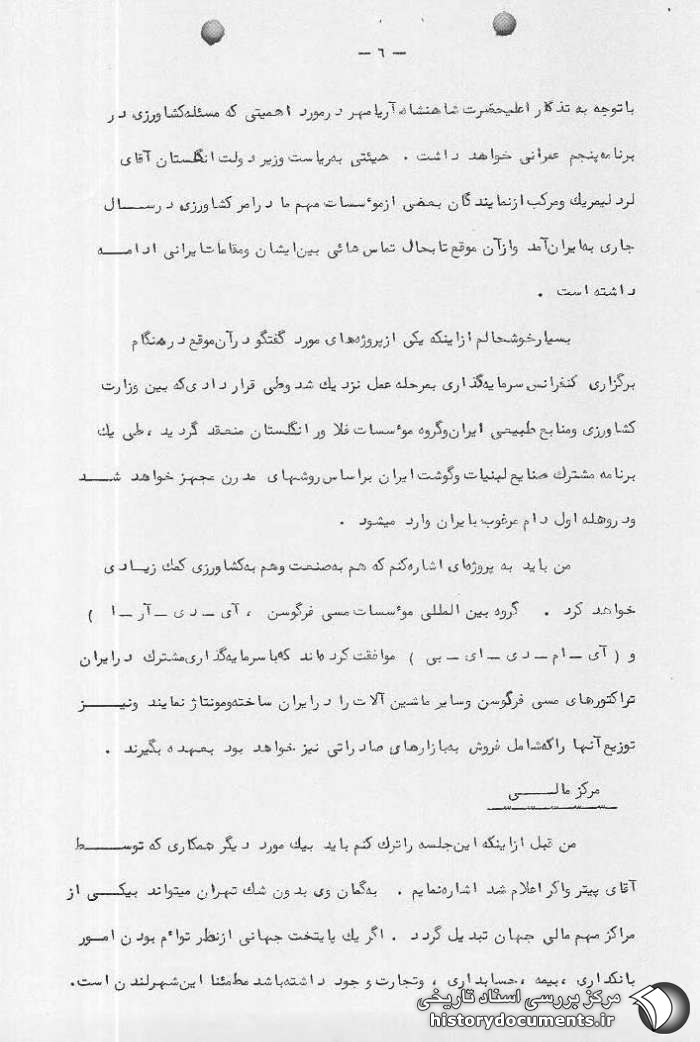 — ٦ —
باتوجه به تذکار اعلیحضرت شاهنشاه آریامهر درمورد اهمیتی که مسئله کشاورزی در
برنامه پنجم عمرانی خواهد داشت . هیئتی بریاست وزیر دولت انگلستان آقای
لرد لیمریك ومرکب ازنمایندگان بعضی ازموٴسسات مهم ما درامر کشاورزی درســـال
جاری به ایران آمد وازآن موقع تابحال تماس هائی بین ایشان ومقامات ایرانی ادامـــه
داشته است .
بسیارخوشحالم ازاینکه یکی ازپروژه‌های مورد گفتگو درآن موقع درهنگام
برگزاری کنفرانس سرمایه‌گذاری بمرحله عمل نزدیك شد وطی قراردادی که بین وزارت
کشاورزی ومنابع طبیعی ایران وگروه موٴسسات فلاور انگلستان منعقد گردید ، طی یك
برنامه مشترك صنایع لبنیات وگوشت ایران براساس روشهای مدرن مجهز خواهد شـــد
ودروهله اول دام مرغوب بایران وارد میشود .
من باید به پروژه‌ای اشاره کنم که هم به صنعت وهم به کشاورزی کمك زیــادی
خواهد کرد . گروه بین المللی موٴسسات مسی فرگوسن ، آی ـ دی ـ آر ـ ا )
و ( آی ـ ام ـ دی ـ ای ـ بی ) موافقت کرده‌اند که با سرمایه‌گذاری مشترك درایران
تراکتورهای مسی فرگوسن وسایر ماشین آلات را درایران ساخته ومونتاژ نمایند ونیــــز
توزیع آنها را که شامل فروش به بازارهای صادراتی نیز خواهد بود بعهده بگیرند .
مرکز مالـــــی
من قبل ازاینکه این جلسه را ترك کنم باید بیك مورد دیگر همکاری که توســـط
آقای پیتر واکر اعلام شد اشاره نمایم . به گمان وی بدون شك تهران میتواند بیکـــی از
مراکز مهم مالی جهان تبدیل گردد . اگر یك پایتخت جهانی ازنظر تواٴم بودن امـور
بانکداری ، بیمه ، حسابداری ، وتجارت وجود داشته باشد مطمئنا این شهر لندن است.
مرکز بررسی اسناد تاریخی
historydocuments.ir